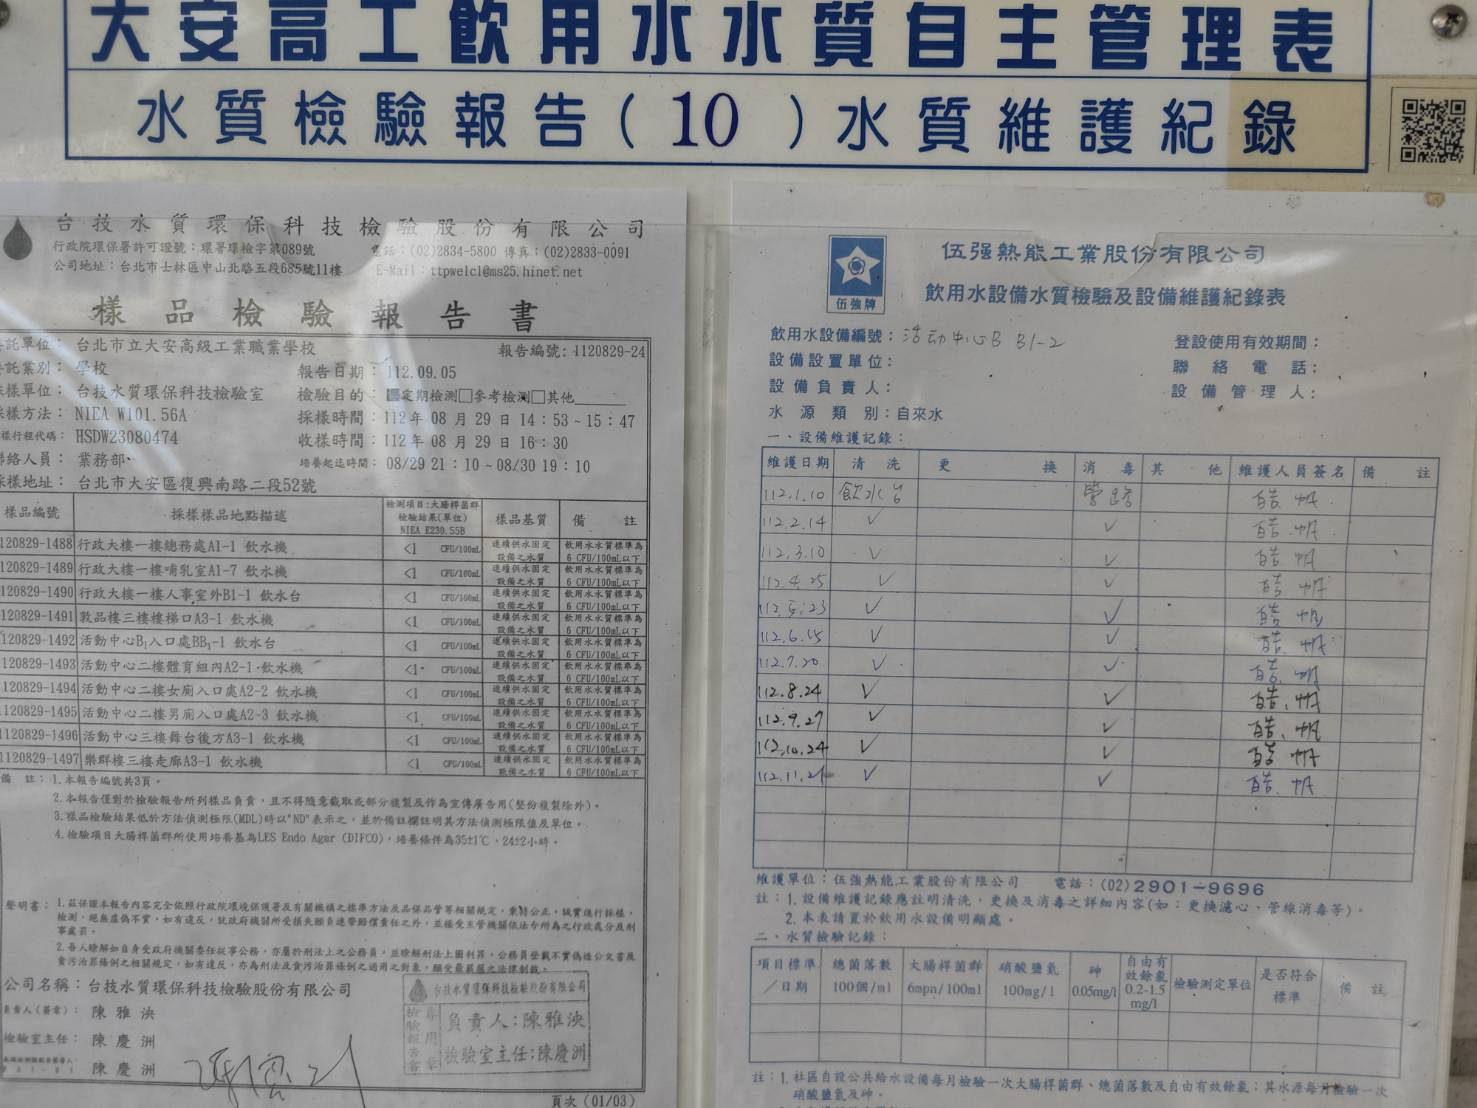 大安高工飲用水水質自主管理表
水質檢驗報告(10)水質維護紀錄
台技水質環保科技檢驗股份有限公司
行政院環保署許可證號：環署環檢字第089號 電話：(02)2834-5800 傳真：(02)2833-0091
公司地址：台北市士林區中山北路五段685號11樓 E-Mail：ttpwelcl@ms25.hinet.net
樣品檢驗報告書
託單位：台北市立大安高級工業職業學校 報告編號：1120829-24
託業別：學校 報告日期：112.09.05
採樣單位：台技水質環保科技檢驗室 檢驗目的：■定期檢測□參考檢測□其他
採樣方法：NIEA W101.56A 採樣時間：112年08月29日14：53~15：47
樣行程代碼：HSDW23080474 收樣時間：112年08月29日16：30
聯絡人員：業務部 培養起迄時間：08/29 21：10~08/30 19：10
採樣地址：台北市大安區復興南路二段52號
樣品編號 採樣樣品地點描述 檢測項目：大腸桿菌群 檢驗結果(單位) NIEA E230.55B 樣品基質 備註
120829-1488 行政大樓一樓總務處A1-1 飲水機 <1 CFU/100mL 連續供水固定設備之水質 飲用水水質標準為6 CFU/100mL以下
120829-1489 行政大樓一樓哺乳室A1-7 飲水機 <1 CFU/100mL 連續供水固定設備之水質 飲用水水質標準為6 CFU/100mL以下
120829-1490 行政大樓一樓人事室外B1-1 飲水台 <1 CFU/100mL 連續供水固定設備之水質 飲用水水質標準為6 CFU/100mL以下
120829-1491 敦品樓三樓樓梯口A3-1 飲水機 <1 CFU/100mL 連續供水固定設備之水質 飲用水水質標準為6 CFU/100mL以下
120829-1492 活動中心B1入口處BB1-1 飲水台 <1 CFU/100mL 連續供水固定設備之水質 飲用水水質標準為6 CFU/100mL以下
120829-1493 活動中心二樓體育組內A2-1 飲水機 <1 CFU/100mL 連續供水固定設備之水質 飲用水水質標準為6 CFU/100mL以下
120829-1494 活動中心二樓女廁入口處A2-2 飲水機 <1 CFU/100mL 連續供水固定設備之水質 飲用水水質標準為6 CFU/100mL以下
1120829-1495 活動中心二樓男廁入口處A2-3 飲水機 <1 CFU/100mL 連續供水固定設備之水質 飲用水水質標準為6 CFU/100mL以下
1120829-1496 活動中心三樓舞台後方A3-1 飲水機 <1 CFU/100mL 連續供水固定設備之水質 飲用水水質標準為6 CFU/100mL以下
1120829-1497 樂群樓三樓走廊A3-1 飲水機 <1 CFU/100mL 連續供水固定設備之水質 飲用水水質標準為6 CFU/100mL以下
備註：1.本報告編號共3頁。
2.本報告僅對於檢驗報告所列樣品負責，且不得隨意截取或部分複製及作為宣傳廣告用(整份複製除外)。
3.樣品檢驗結果低於方法偵測極限(MDL)時以"ND"表示之，並於備註欄註明其方法偵測極限值及單位。
4.檢驗項目大腸桿菌群所使用培養基為LES Endo Agar (DIFCO)，培養條件為35±1℃，24±2小時。
聲明書：1.茲保證本報告內容完全依照行政院環境保護署及有關機構之標準方法及品保品管等相關規定，秉持公正、誠實進行採樣、
檢測，絕無虛偽不實，如有違反，就政府機關所受損失願負連帶賠償責任之外，並接受主管機關依法令所為之行政處分及刑
事處罰。
2.吾人瞭解如自身受政府機關委任從事公務，亦屬於刑法上之公務員，並瞭解刑法上圖利罪、公務員登載不實偽造公文書及
貪污治罪條例之相關規定，如有違反，亦為刑法及貪污治罪條例之適用之對象，願受最嚴厲之法律制裁。
公司名稱：台技水質環保科技檢驗股份有限公司
負責人(簽章)：陳雅泱
檢驗室主任：陳慶洲
陳慶洲
台技水質環保科技檢驗股份有限公司
檢驗報告專用章
負責人：陳雅泱
檢驗室主任：陳慶洲
頁次(01/03)
伍強牌
伍强熱能工業股份有限公司
飲用水設備水質檢驗及設備維護紀錄表
飲用水設備編號：活动中心B B1-2 登設使用有效期間：
設備設置單位： 聯絡電話：
設備負責人： 設備管理人：
水源類別：自來水
一、設備維護記錄：
維護日期 清洗 更換 消毒 其他 維護人員簽名 備註
112.1.10 飲水台 管路 皓帆
112.2.14 ✓ ✓ 皓帆
112.3.10 ✓ ✓ 皓帆
112.4.25 ✓ ✓ 皓帆
112.5.23 ✓ ✓ 皓帆
112.6.15 ✓ ✓ 皓帆
112.7.20 ✓ ✓ 皓帆
112.8.24 ✓ ✓ 皓帆
112.9.27 ✓ ✓ 皓帆
112.10.24 ✓ ✓ 皓帆
112.11.21 ✓ ✓ 皓帆
維護單位：伍強熱能工業股份有限公司 電話：(02)2901-9696
註：1.設備維護記錄應註明清洗、更換及消毒之詳細內容(如：更換濾心、管線消毒等)。
2.本表請置於飲用水設備明顯處。
二、水質檢驗記錄：
項目標準／日期 總菌落數 100個/ml 大腸桿菌群 6mpn/100ml 硝酸鹽氮 100mg/l 砷 0.05mg/l 自由有效餘氯 0.2-1.5 mg/l 檢驗測定單位 是否符合標準 備註
註：1.社區自設公共給水設備每月檢驗一次大腸桿菌群、總菌落數及自由有效餘氯；其水源每月檢驗一次
硝酸鹽氮及砷。